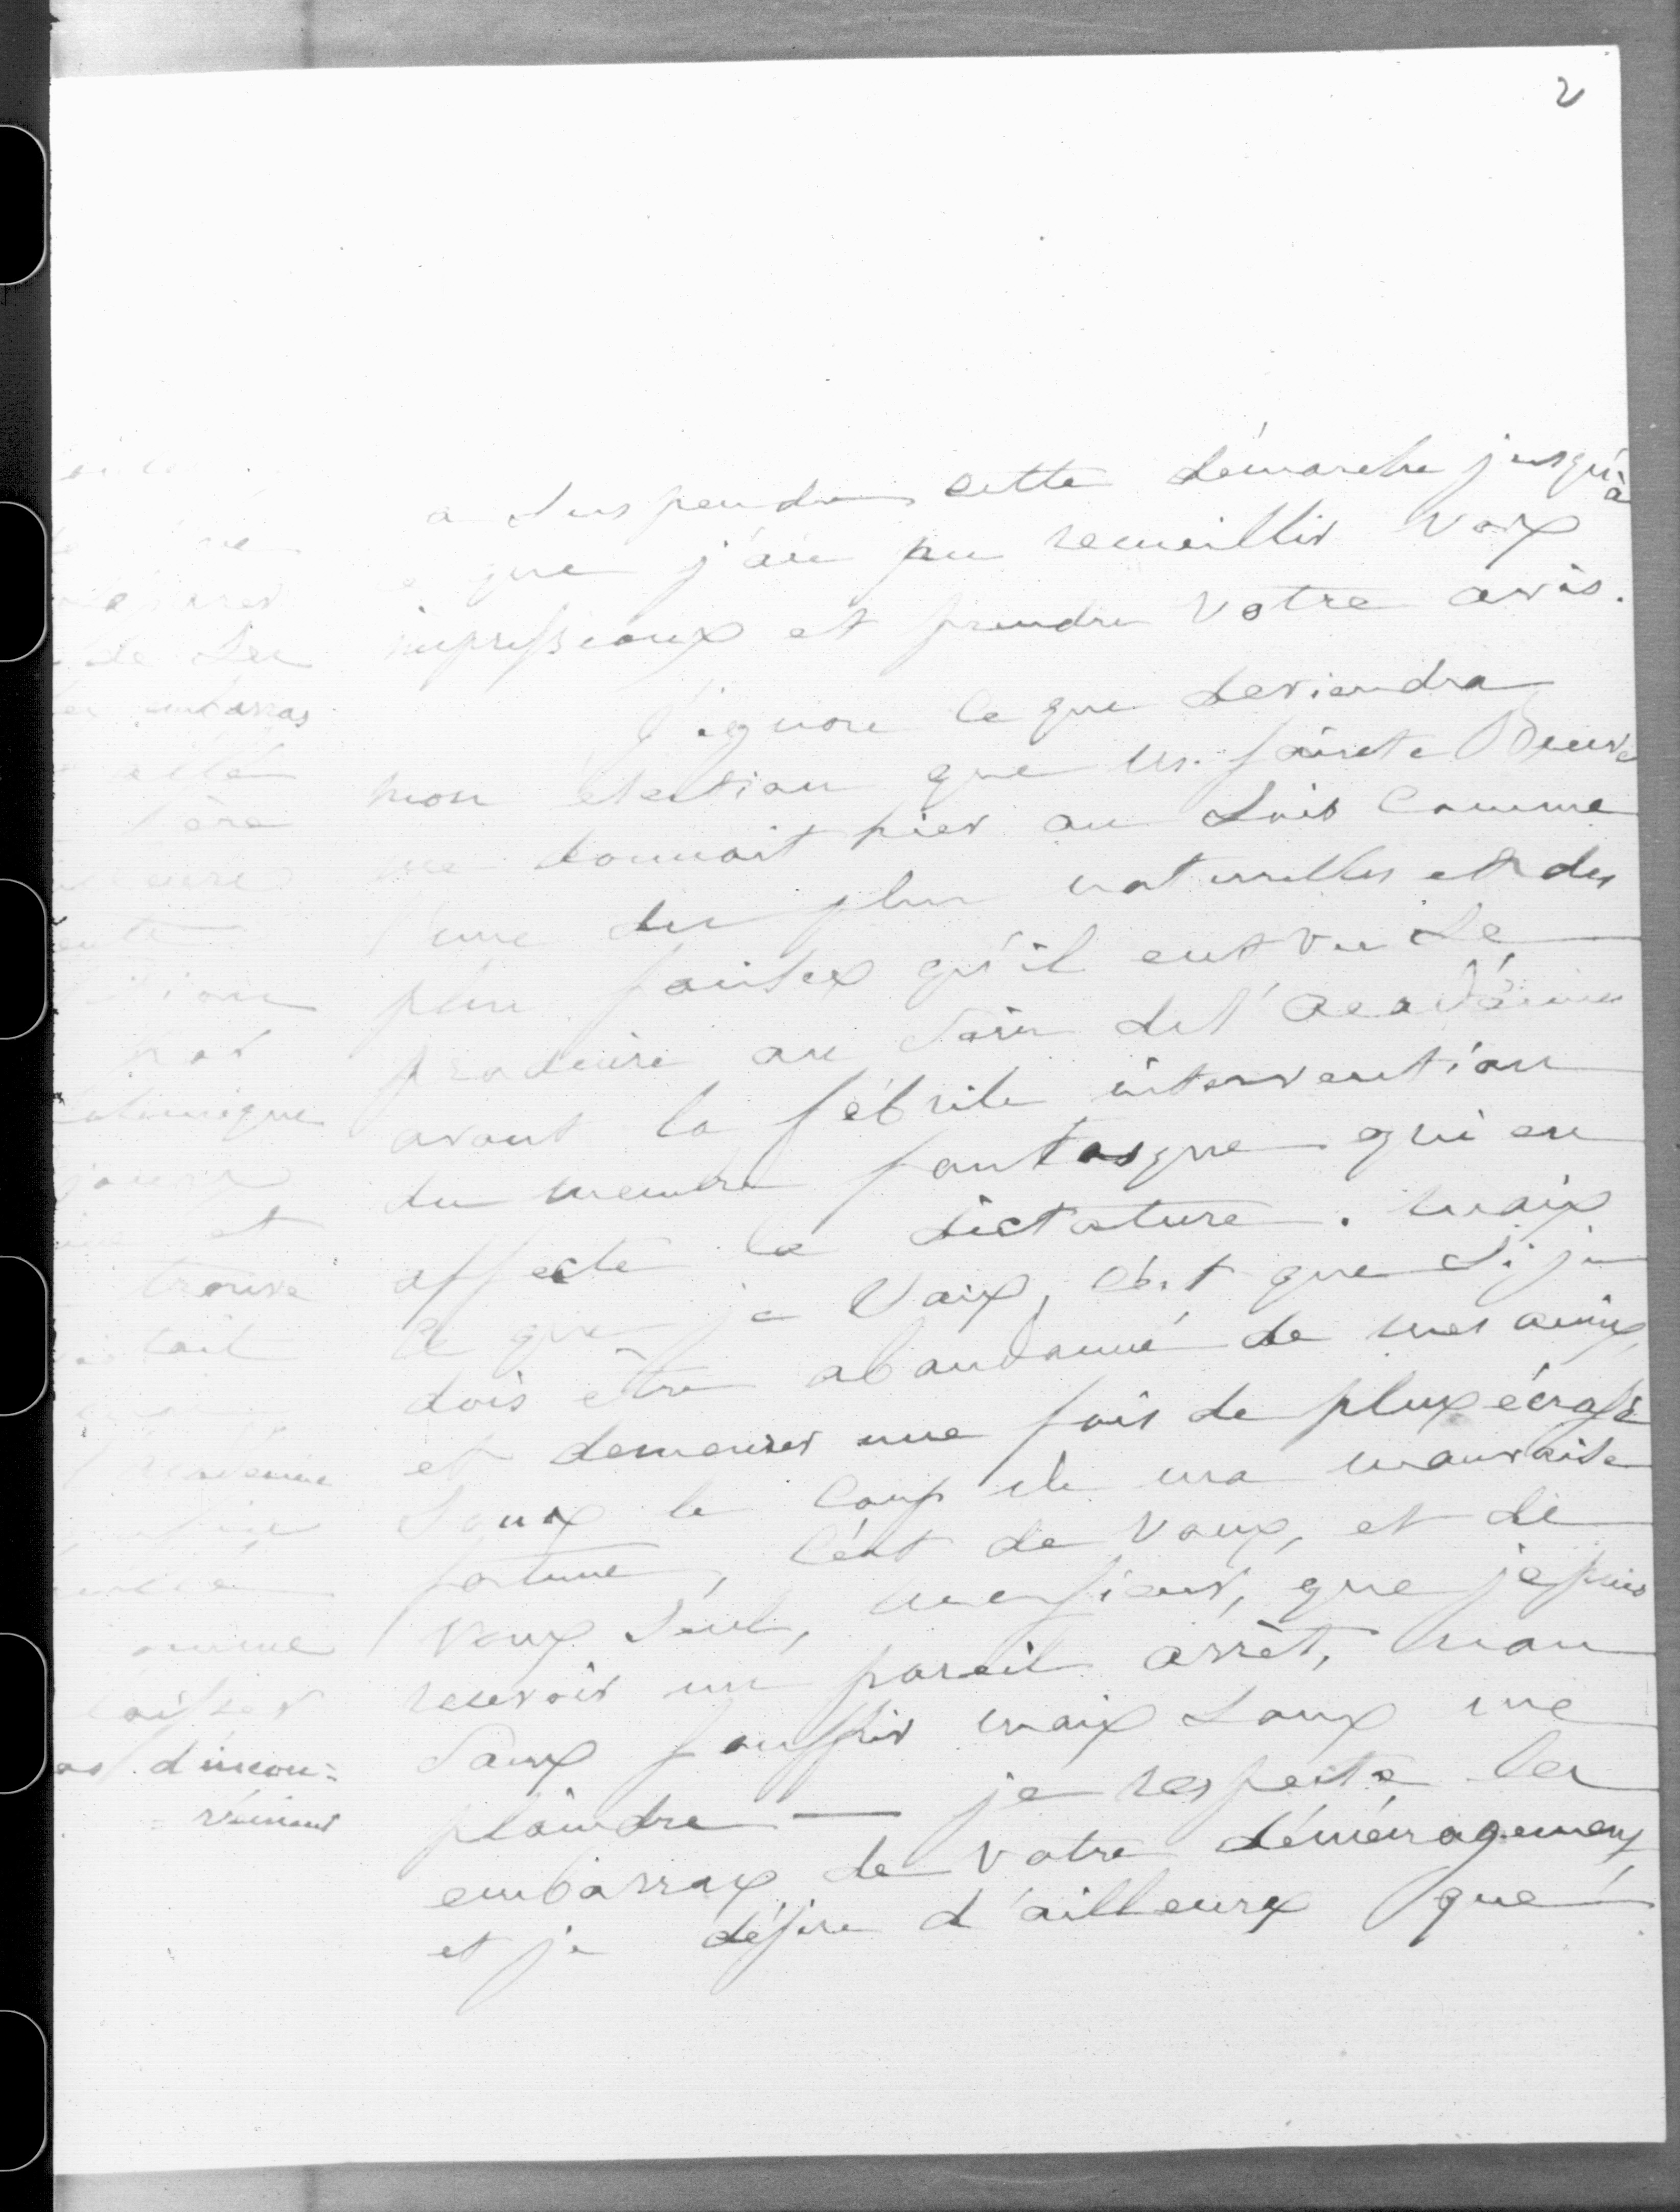 2
a suspendre cette démarche jusqu'à
ce que j'aie pu recueillir vos
impressions et prendre votre avis.
J'ignore ce que deviendra
mon élection que M. Sainte Beuve
me donnait hier au soir comme
l'une des plus naturelles et des
plus faites qu'il eut vu se
produire au sein de l'académie
avant la fébrile intervention
du membre fantasque qui en
affecte la dictature. Mais
ce que je sais, c'est que si je
dois être abandonné de mes amis,
et demeurer une fois de plus écrasé
sous le coup de ma mauvaise
fortune, c'est de vous, et de
vous seul, monsieur, que je puis
recevoir un pareil arrêt, non
sans souffrir mais sans me
plaindre — je respecte les
embarras de votre déménagement,
et je désire d'ailleurs que
de ses
les embarras
allé
trouve
laisser
d'incon=
=vénient